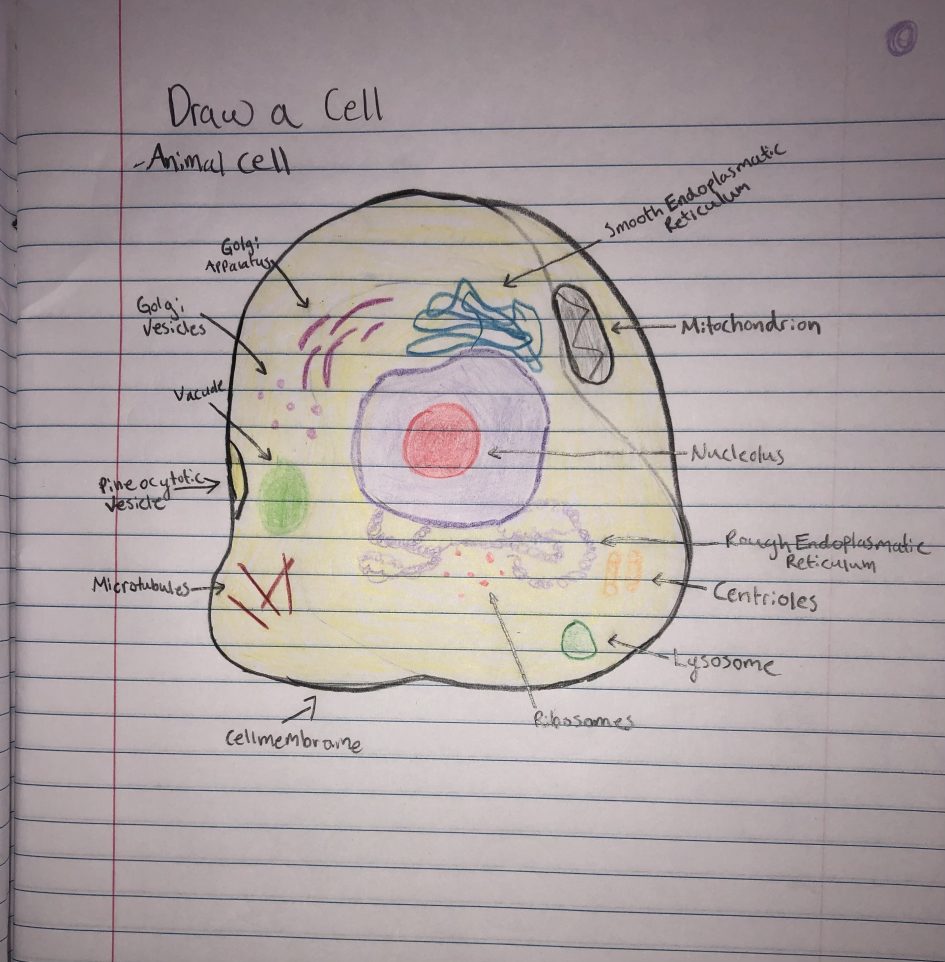 Draw a Cell
-Animal cell
Smooth Endoplasmatic
Reticulum
Golgi
Apparatus
Golgi
Vesicles
Mitochondrion
Vacuole
Nucleolus
Pineocytotic
Vesicle
Rough Endoplasmatic
Reticulum
Microtubules
Centrioles
Lysosome
Ribosomes
Cellmembrane